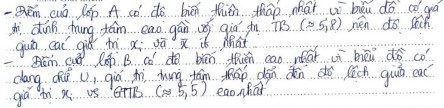 - Điểm của lớp A có độ biến thiên thấp nhất vì biểu đồ có giá
trị đỉnh trung tâm cao gần với giá trị TB (≈ 5,8) nên độ lệch
giữa các giá trị xᵢ và x̄ ít nhất.
- Điểm của lớp B có độ biến thiên cao nhất vì biểu đồ có
dạng chữ U, giá trị trung tâm thấp dẫn đến độ lệch giữa các
giá trị xᵢ vs GTTB (≈ 5,5) cao nhất